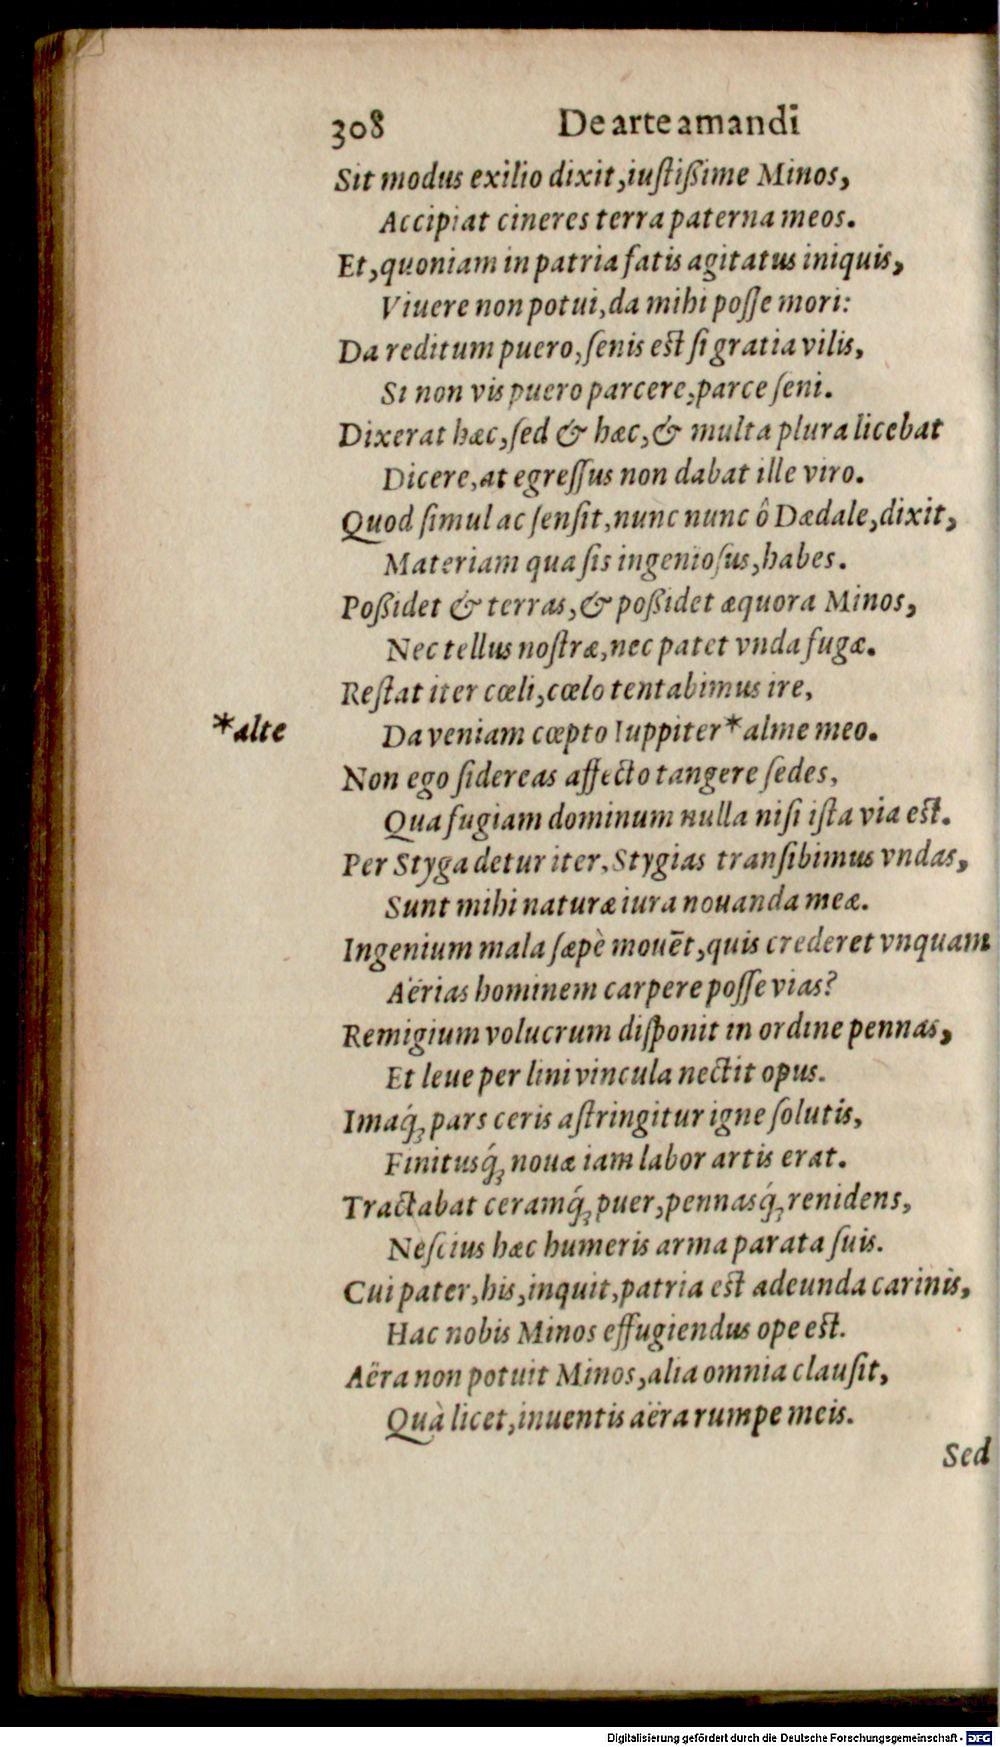 308 De arte amandi
Sit modus exilio dixit, iustißime Minos,
Accipiat cineres terra paterna meos.
Et, quoniam in patria fatis agitatus iniquis,
Viuere non potui, da mihi posse mori:
Da reditum puero, senis est si gratia vilis,
Si non vis puero parcere, parce seni.
Dixerat hæc, sed & hæc, & multa plura licebat
Dicere, at egressus non dabat ille viro.
Quod simul ac sensit, nunc nunc ô Dædale, dixit,
Materiam qua sis ingeniosus, habes.
Poßidet & terras, & poßidet æquora Minos,
Nec tellus nostræ, nec patet vnda fugæ.
Restat iter cœli, cœlo tentabimus ire,
*alte Da veniam cœpto Iuppiter *alme meo.
Non ego sidereas affecto tangere sedes,
Qua fugiam dominum nulla nisi ista via est.
Per Styga detur iter, Stygias transibimus vndas,
Sunt mihi naturæ iura nouanda meæ.
Ingenium mala sæpè mouēt, quis crederet vnquam
Aërias hominem carpere posse vias?
Remigium volucrum disponit in ordine pennas,
Et leue per lini vincula nectit opus.
Imaq́; pars ceris astringitur igne solutis,
Finitusq́; nouæ iam labor artis erat.
Tractabat ceramq́; puer, pennasq́; renidens,
Nescius hæc humeris arma parata suis.
Cui pater, his, inquit, patria est adeunda carinis,
Hac nobis Minos effugiendus ope est.
Aëra non potuit Minos, alia omnia clausit,
Quà licet, inuentis aëra rumpe meis.
Sed
Digitalisierung gefördert durch die Deutsche Forschungsgemeinschaft - DFG